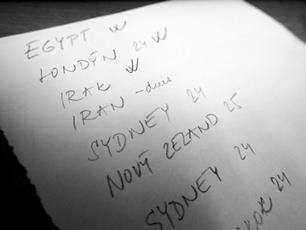 EGYPT
LONDÝN 24
IRAK
IRAN - dnes
SYDNEY 24
NOVÝ ZELAND 25
SYDNEY 24
24